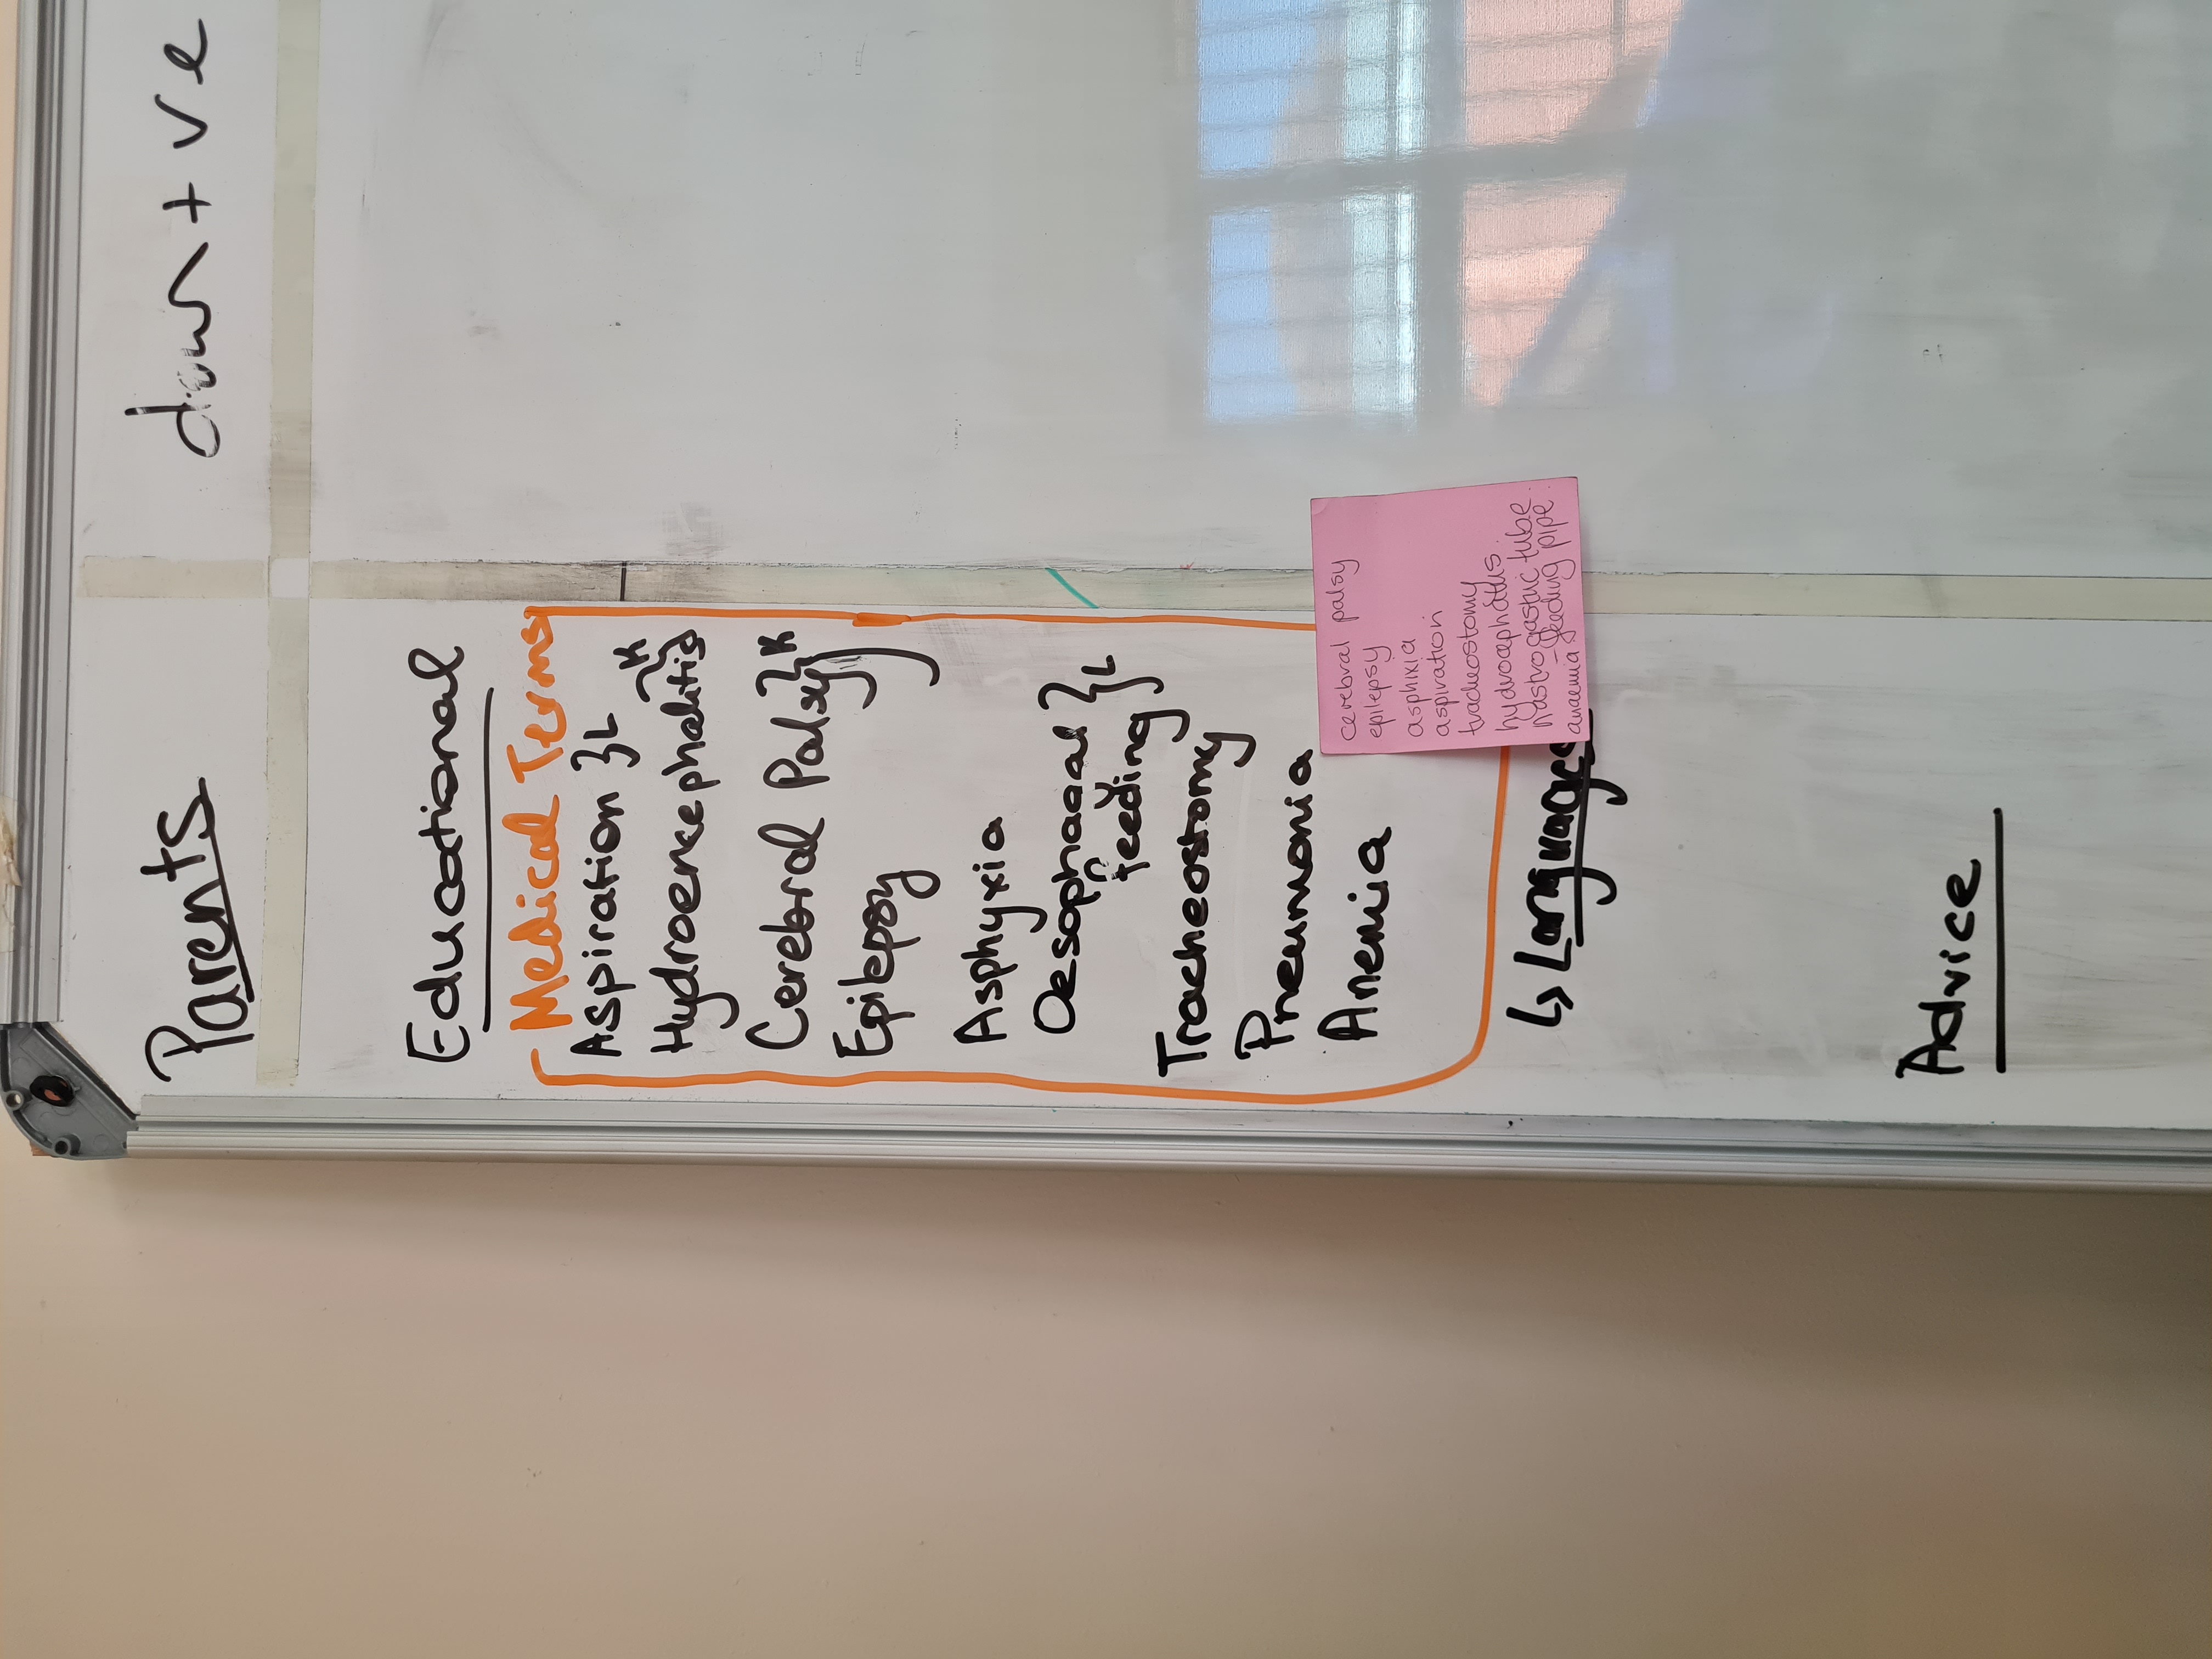 Parents
+ ve
Educational
Medical Terms
Aspiration } L
Hydroencephalitis } K
Cerebral Palsy } K
Epilepsy
Asphyxia
Oesophagal } L
feeding
Tracheostomy
Pneumonia
Anemia
cerebral palsy
epilepsy
asphixia
aspiration
tracheostomy
hydrocephatus
nastrogastric tube
- feeding pipe
anaemia
↳ Languages
Advice